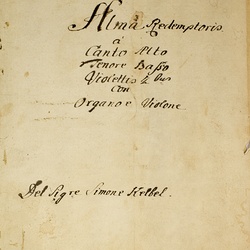 Alma Redemptoris
à
Canto Alto
Tenore Basso
Violettis 2bus
con
Organo e Violone
Del Sigre Simone Kelbel.